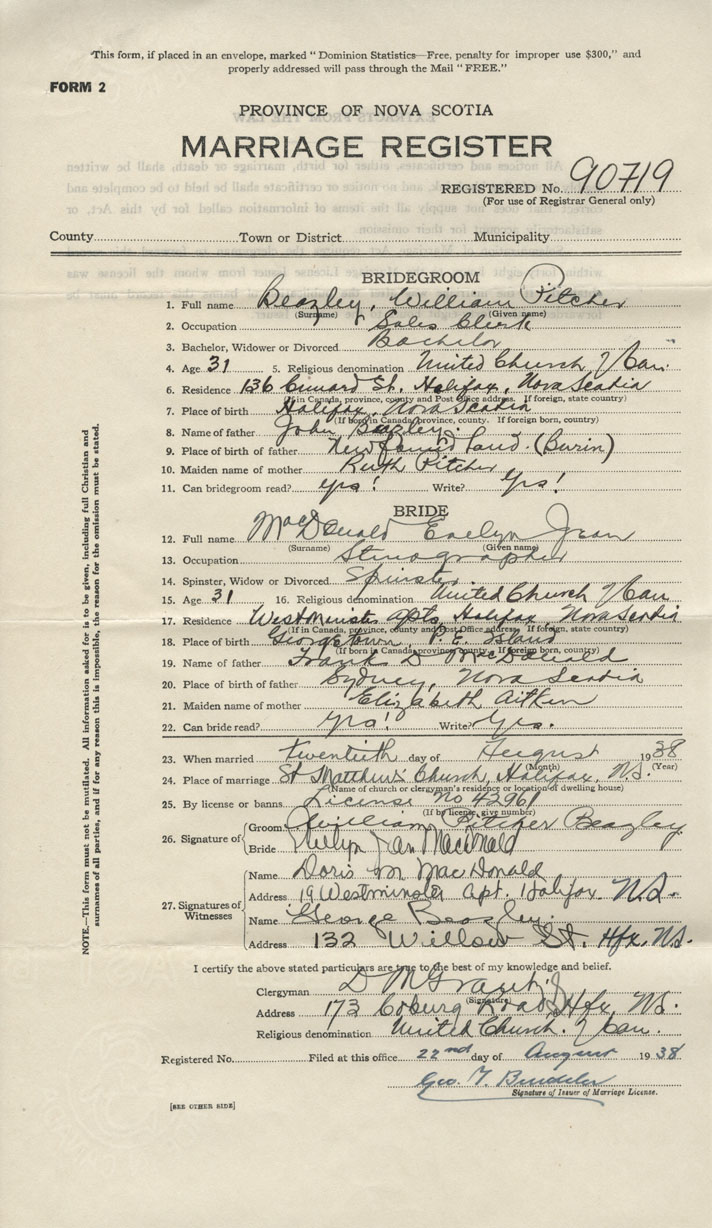 This form, if placed in an envelope, marked "Dominion Statistics—Free, penalty for improper use $300," and
properly addressed will pass through the Mail "FREE."
FORM 2
PROVINCE OF NOVA SCOTIA
MARRIAGE REGISTER
REGISTERED No. 90719
(For use of Registrar General only)
County Town or District Municipality
BRIDEGROOM
1. Full name Beazley, William Pitcher
(Surname) (Given name)
2. Occupation Sales Clerk
3. Bachelor, Widower or Divorced Bachelor
4. Age 31 5. Religious denomination United Church of Can.
6. Residence 136 Cunard St. Halifax, Nova Scotia
(If in Canada, province, county and Post Office address. If foreign, state country)
7. Place of birth Halifax, Nova Scotia
(If born in Canada, province, county. If foreign born, country)
8. Name of father John Beazley.
9. Place of birth of father Newfoundland. (Burin)
10. Maiden name of mother Ruth Pitcher
11. Can bridegroom read? yes! Write? Yes!
BRIDE
12. Full name MacDonald Evelyn Jean
(Surname) (Given name)
13. Occupation Stenographer
14. Spinster, Widow or Divorced Spinster
15. Age 31 16. Religious denomination United Church of Can
17. Residence Westminster Apts, Halifax, Nova Scotia
(If in Canada, province, county and Post Office address. If foreign, state country)
18. Place of birth Georgetown, P. E. Island
(If born in Canada, province, county. If foreign born, country)
19. Name of father Frank D McDonald
20. Place of birth of father Sydney, Nova Scotia
21. Maiden name of mother Elizabeth Aitken
22. Can bride read? Yes! Write? Yes.
23. When married twentieth day of August 1938
(Month) (Year)
24. Place of marriage St Matthew's Church, Halifax, N.S.
(Name of church or clergyman's residence or location of dwelling house)
25. By license or banns License No 42961
(If by license, give number)
26. Signature of Groom William Pitcher Beazley
Bride Evelyn Jean MacDonald
27. Signatures of Witnesses
Name Doris M MacDonald
Address 19 Westminster Apt. Halifax N.S.
Name George Beazley.
Address 132 Willow St. Hfx. N.S.
I certify the above stated particulars are true to the best of my knowledge and belief.
Clergyman D M
(Signature)
Address 173 Coburg Road Hfx, N.S.
Religious denomination United Church of Can.
Registered No. Filed at this office 22nd day of August 1938
Geo. T.
Signature of Issuer of Marriage License.
[SEE OTHER SIDE]
NOTE.—This form must not be mutilated. All information asked for is to be given, including full Christian and
surnames of all parties, and if for any reason this is impossible, the reason for the omission must be stated.